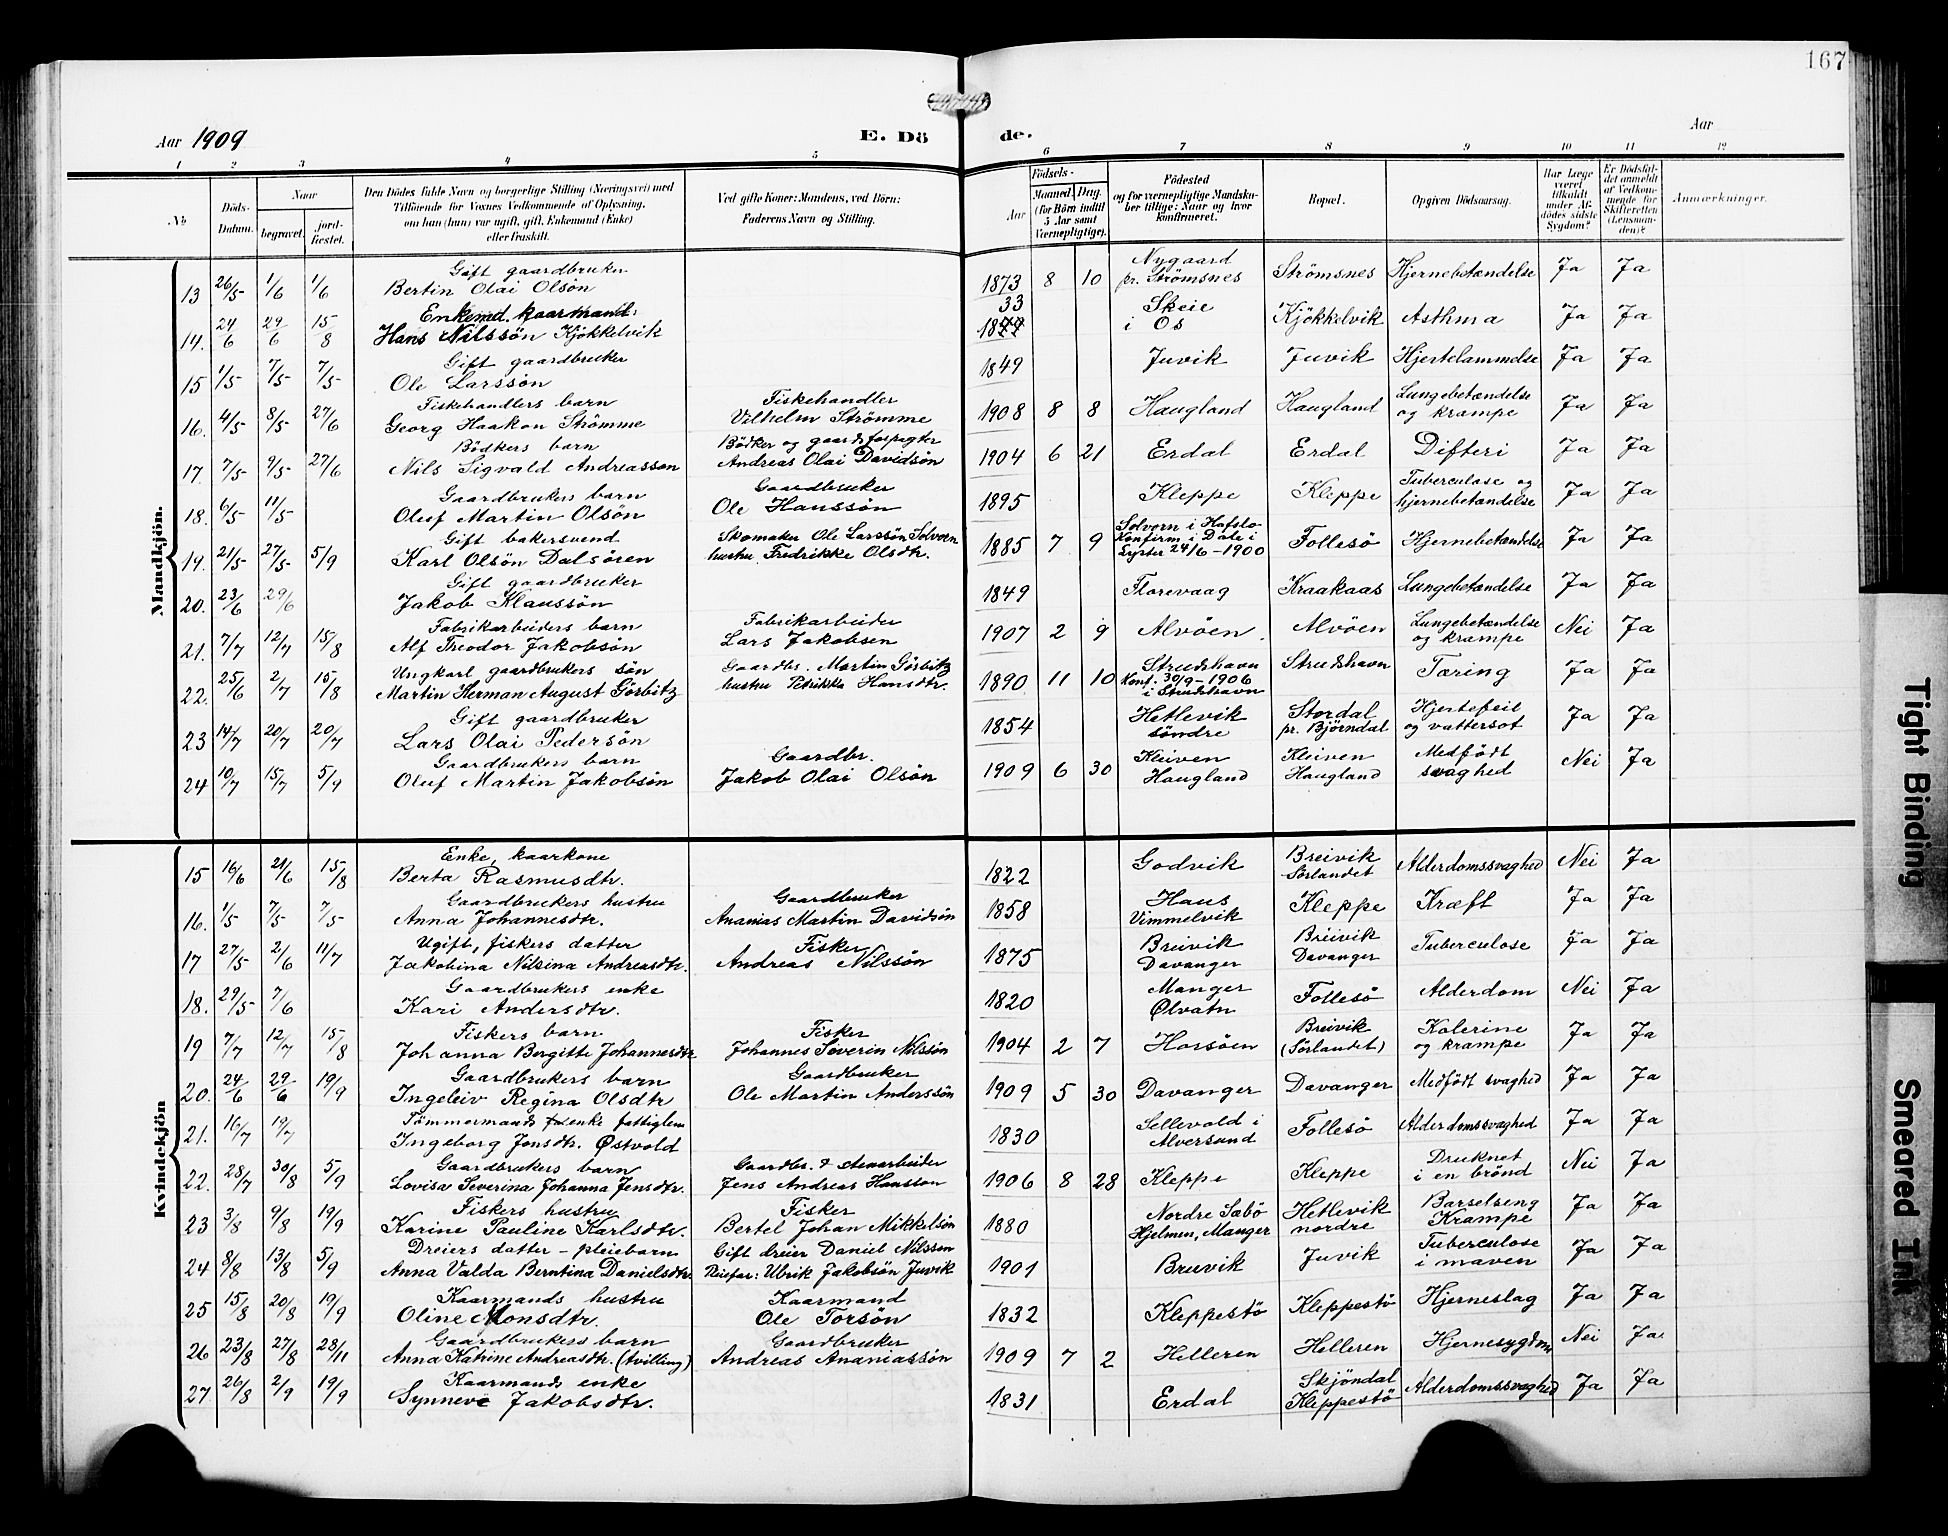 167
Aar 1909
E. Dö
de.
Aar
1 2 3 4 5 6 7 8 9 10 11 12
№
Döds-Datum.
Naar
begravet.
jord-fæstet.
Den Dödes fulde Navn og borgerlige Stilling (Næringsvei) med
Tilföiende for Voxnes Vedkommende af Oplysning,
om han (hun) var ugift, gift, Enkemand (Enke)
eller fraskilt.
Ved gifte Koner: Mandens, ved Börn:
Faderens Navn og Stilling.
Födsels-
Aar
Maaned. Dag.
(for Börn indtil
5 Aar samt
Værnepligtige).
Födested
og for værnepligtige Mandsku-
ber tillige: Naar og hvor
konfirmeret.
Bopæl.
Opgiven Dödsaarsag.
Har Læge
været
tilkaldt
under Af-
dödes sidste
Sygdom?
Er Dödsfal-
det anmeldt
af Vedkom-
mende for
Skifteretten
(Lensman-
den)?
Anmærkninger.
Mandkjön.
13 26/5 1/6 1/6 Gift gaardbruker Bertin Olai Olsön 1873 8 10 Nygaard pr. Strömsnes Strömsnes Hjernebetændelse Ja Ja
14. 24/6 29/6 15/8 Enkemd. kaarmand: Hans Nilssön Kjökkelvik 33 18 Skeie i Os Kjökkelvik Asthma Ja Ja
15 1/5 7/5 7/5 Gift gaardbruker Ole Larssön 1849 Juvik Juvik Hjertelammelse Ja Ja
16. 4/5 8/5 27/6 Fiskehandlers barn Georg Haakon Strömme Fiskehandler Vilhelm Strömme 1908 8 8 Haugland Haugland Lungebetændelse og krampe Ja Ja
17. 7/5 9/5 27/6 Bödkers barn Nils Sigvald Andreassøn Bödker og gaardsforpagter Andreas Olai Davidsön 1904 6 21 Erdal Erdal Difteri Ja Ja
18. 6/5 11/5 Gaardbrukers barn Oluf Martin Olsön Gaardbruker Ole Hanssön 1895 Kleppe Kleppe Tuberculose og hjernebetændelse Ja Ja
19. 21/5 27/5 5/9 Gift bakersvend Karl Olsön Dalsören Skomaker Ole Larssön Solvorn hustru Fredrikke Olsdtr. 1885 7 9 Solvorn i Hafslo Konfirm i Dale i Lyster 24/6 - 1900 Follesö Hjernebetændelse Ja Ja
20. 23/6 29/6 Gift gaardbruker Jakob Klaussön 1849 Florevaag Kraakaas Lungebetændelse Ja Ja
21. 7/7 12/7 15/8 Fabrikarbeiders barn Alf Theodor Jakobsön Fabrikarbeider Lars Jakobsen 1907 2 9 Alvöen Alvöen Lungebetændelse og krampe Nei Ja
22. 25/6 2/7 15/8 Ungkarl gaardbrukers sön Martin Herman August Görbitz Gaardbr. Martin Görbitz hustru Petrikke Hansdtr. 1890 11 10 Strudshavn Konf. 30/9 - 1906 i Strudshavn Strudshavn Tæring Ja Ja
23 14/7 20/7 20/7 Gift gaardbruker Lars Olai Pedersön 1854 Hetlevik söndre Stordal pr. Björndal Hjertefeil og vattersot Ja Ja
24 10/7 15/7 5/9 Gaardbrukers barn Oluf Martin Jakobsön Gaardbr. Jakob Olai Olsön 1909 6 30 Kleiven Haugland Kleiven Haugland Medfödt svaghed Nei Ja
Kvindekjön
15 16/6 21/6 15/8 Enke, kaarkone Berta Rasmusdtr. 1822 Godvik Breivik Sörlandet Alderdomssvaghed Nei Ja
16. 1/5 7/5 7/5 Gaardbrukers hustru Anna Johannesdtr. Gaardbruker Ananias Martin Davidsön 1858 Haus Vimmelvik Kleppe Kræft Ja Ja
17 27/5 2/6 11/7 Ugift, fiskers datter Jakobina Nilsina Andreasdtr. Fisker Andreas Nilssön 1875 Breivik Davanger Breivik Davanger Tuberculose Ja Ja
18. 29/5 7/6 Gaardbrukers enke Kari Andersdtr. 1820 Manger Ølvatn Follesö Alderdom Nei Ja
19 7/7 12/7 15/8 Fiskers barn Johanna Bergitte Johannesdtr Fisker Johannes Severin Nilssön 1904 2 7 Horsöen Breivik (Sörlandet) Kolerine og krampe Ja Ja
20. 24/6 29/6 19/9 Gaardbrukers barn Ingeleiv Regina Olsdtr Gaardbruker Ole Martin Anderssön 1909 5 30 Davanger Davanger Medfödt svaghed Ja Ja
21. 16/7 19/7 Tömmermands enke fattiglem Ingeborg Jonsdtr. Østvold 1830 Sellevold i Alversund Follesö Alderdomssvaghed Ja Ja
22. 28/7 30/8 5/9 Gaardbrukers barn Lovisa Severina Johanna Jensdtr. Gaardbr. & Jens Andreas Hansson 1906 8 28 Kleppe Kleppe Druknet i en brönd Nei Ja
23 3/8 9/8 19/9 Fiskers hustru Karine Pauline Karlsdtr. Fisker Bertel Johan Mikkelsön 1880 Nordre Sæbö Hjelmen, Manger Hetlevik nordre Barselseng Krampe Ja Ja
24 8/8 13/8 5/9 Dreiers datter - pleiebarn Anna Valda Berntina Danielsdtr. Gift dreier Daniel Nilssen Pleiefar: Ulrik Jakobsön Juvik 1901 Breivik Juvik Tuberculose i maven Ja Ja
25 15/8 20/8 19/9 Kaarmands hustru Oline Monsdtr. Kaarmand Ole Torsön 1832 Kleppestö Kleppestö Hjerneslag Ja Ja
26 23/8 27/8 23/11 Gaardbrukers barn Anna Katrine Andreasdtr. (tvilling) Gaardbruker Andreas Ananiassön 1909 7 2 Helleren Helleren Hjernesygdom Nei Ja
27. 26/8 2/9 19/9 Kaarmands enke Synneve Jakobsdtr. 1831 Erdal Skjöndal Kleppestö Alderdomssvaghed Ja Ja
Tight Binding
Smeared Ink